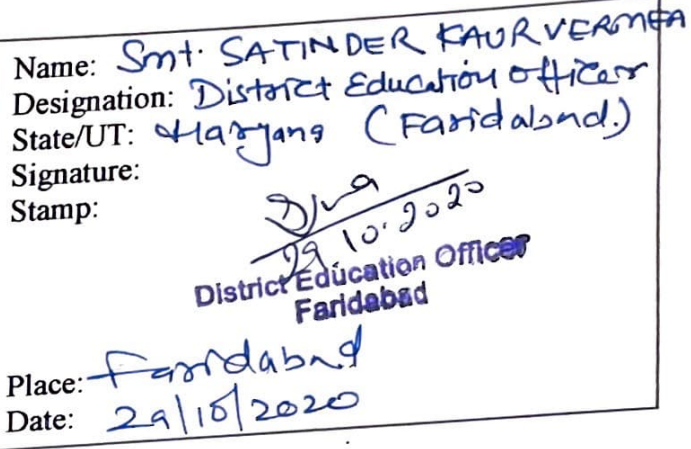 Name: Smt. SATINDER KAUR VERMA
Designation: District Education Officer
State/UT: Haryana (Faridabad.)
Signature:
Stamp:
29.10.2020
District Education Officer
Faridabad
Place: Faridabad
Date: 29/10/2020